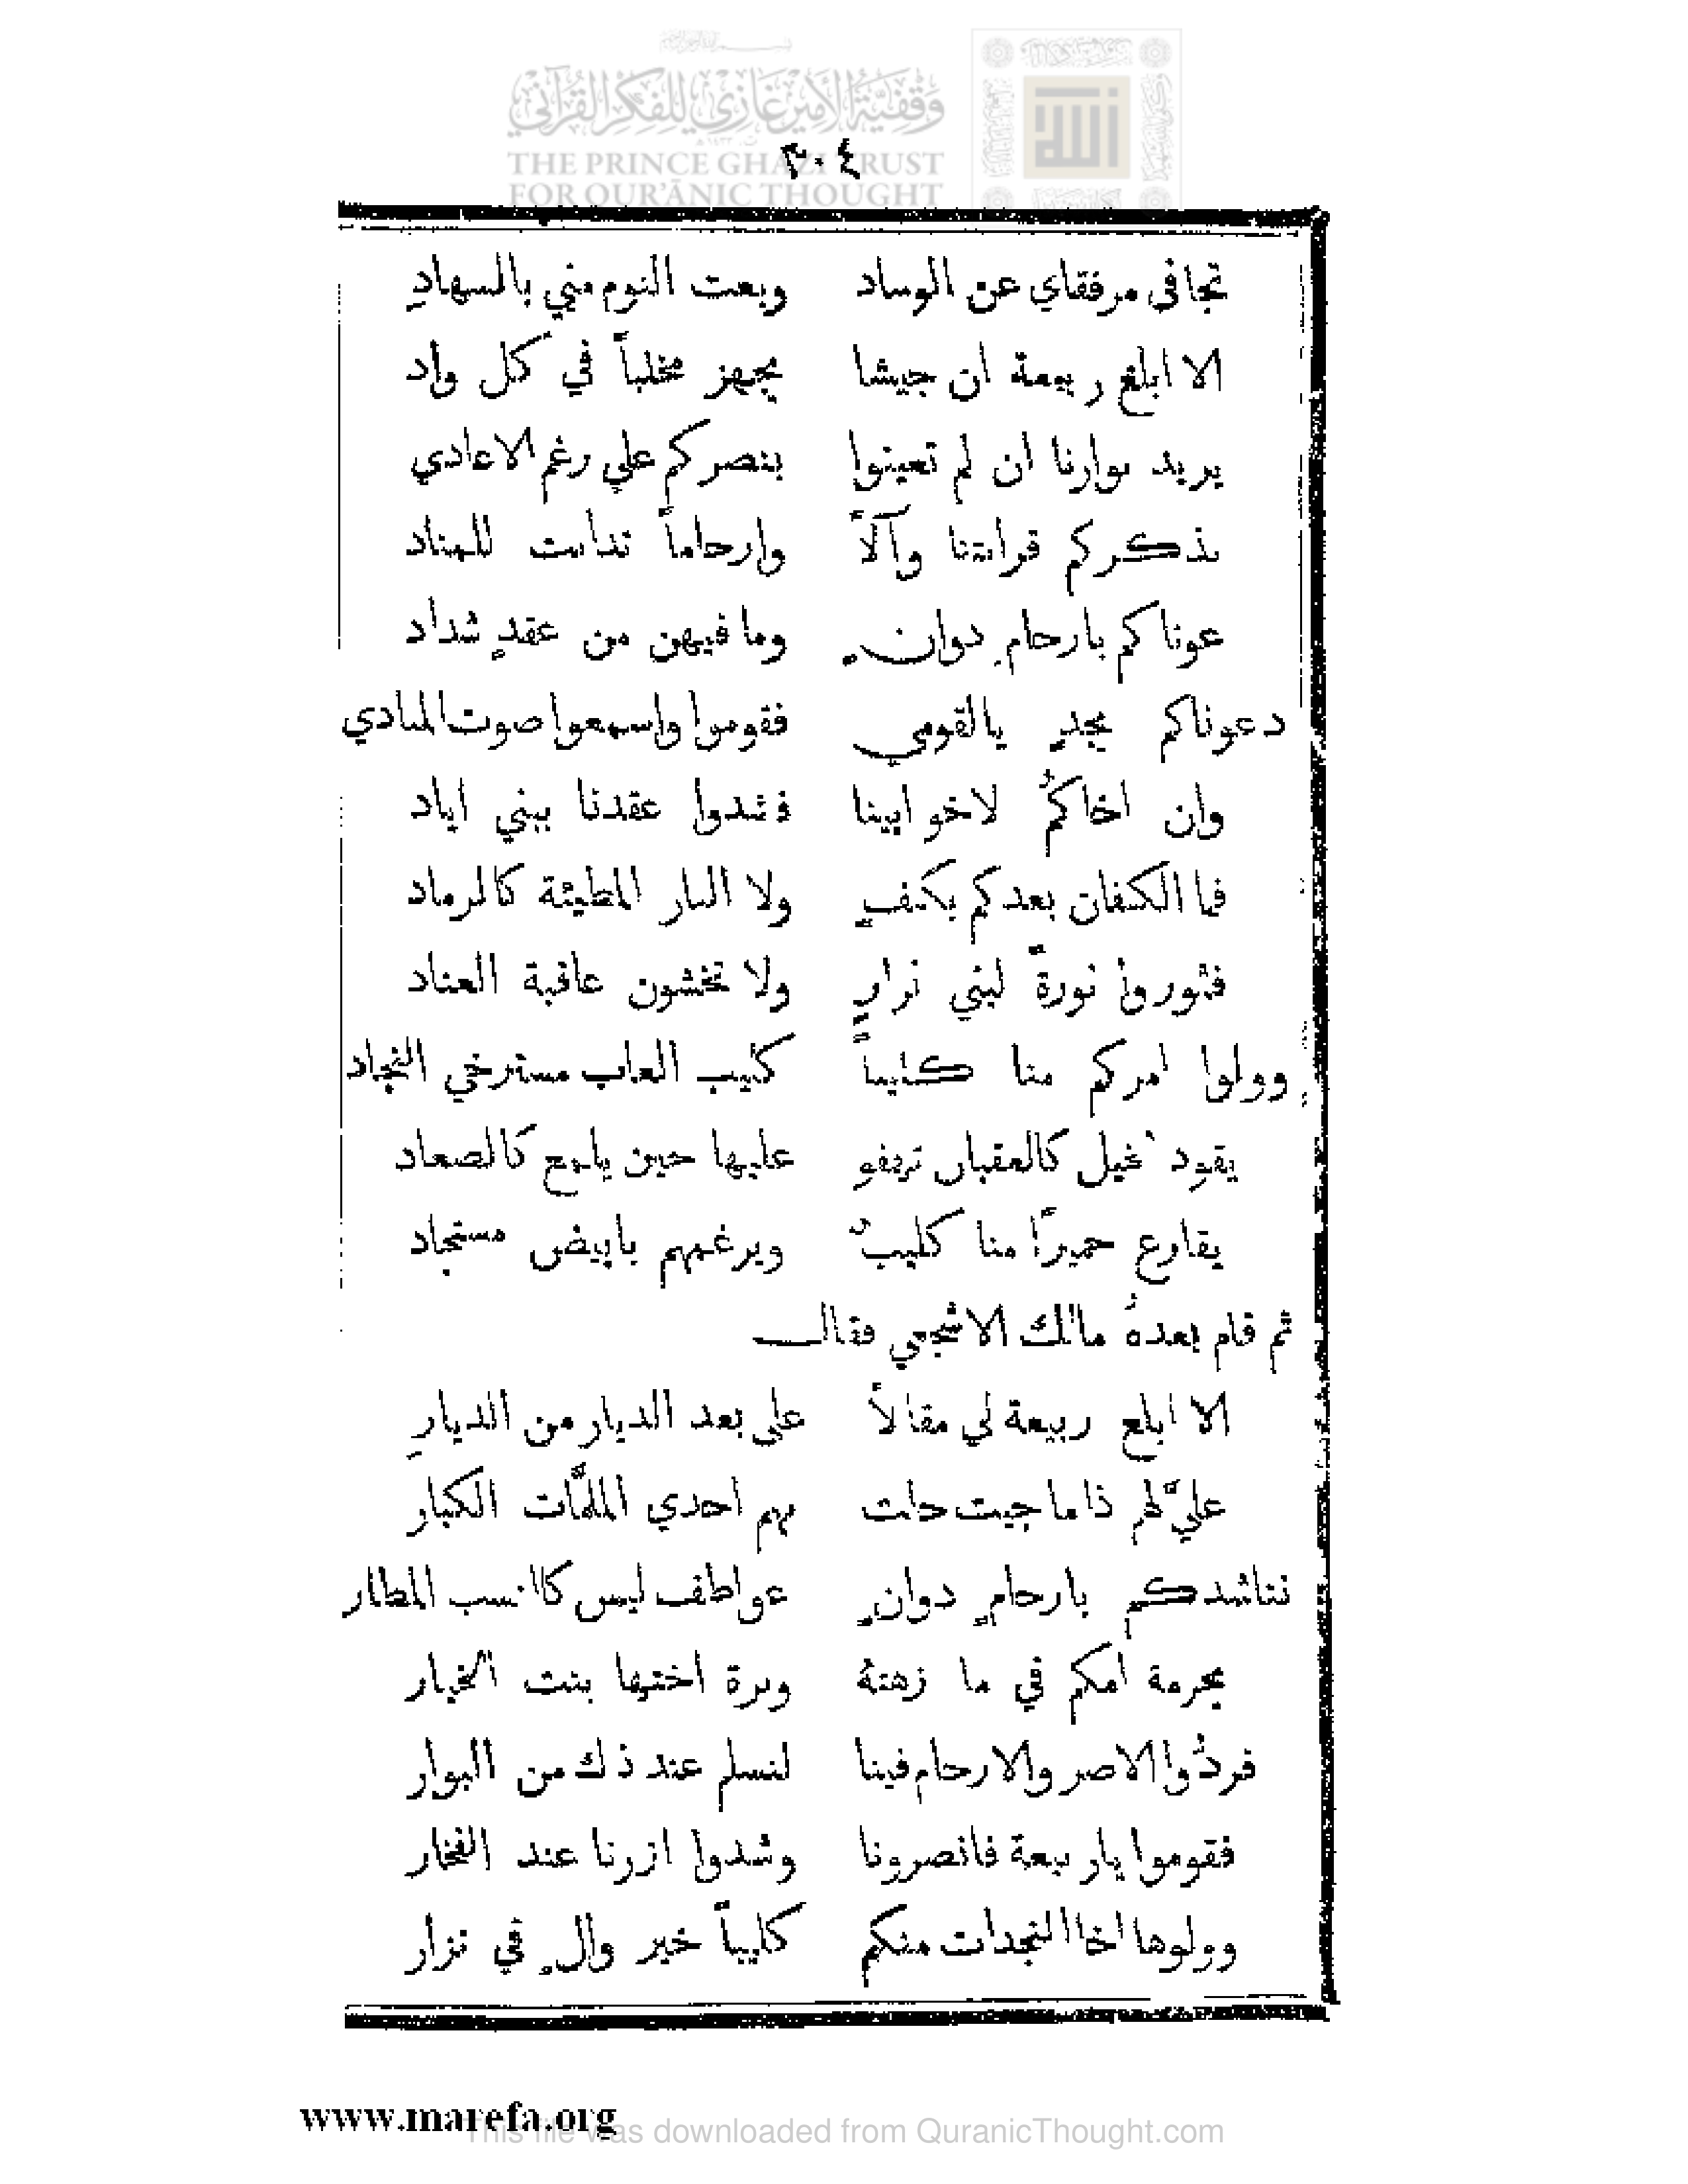 وقفية الأمير غازي للفكر القرآني
THE PRINCE GHAZI TRUST
FOR QUR'ĀNIC THOUGHT
٣٠٤
تجافى مرفقاي عن الوساد وبعت النوم مني بالسهادِ
الا ابلغ ربيعة ان جيشا يجهز مخلباً في كل واد
يريد بوارنا ان لم تعينوا بنصركم علي رغم الاعادي
نذكركم قرابتنا وآلاً وارحاماً تدانت للهناد
عوناكم بارحامٍ دوانٍ وما فيهن من عقدٍ شداد
دعوناكم بجدٍ يالقومي فقوموا واسمعوا صوت المنادي
وان اخاكمُ لاخو ابينا فشدوا عقدنا ببني اياد
فما الكفان بعدكم بكفٍ ولا النار المطيئة كالرماد
فثوروا ثورةً لبني نزارٍ ولا تخشون عاقبة العناد
وولوا امركم منا كليباً كليب الغاب مسترخي النجاد
يقود خيل كالعقبان تهفو عليها حين يلمع كالصعاد
يقارع حميراً منا كليبٌ ويرغمهم بابيض مستجاد
ثم قام بعدهُ مالك الاشجعي فقال
الا ابلع ربيعة لي مقالاً على بعد الديار من الديارِ
عليَّ لهم ذا ما جيت حلت بهم احدي الملمَّات الكبار
نناشدكم بارحامٍ دوانٍ عواطف ليس كالنسب المطار
بحرمة امكم في ما زهتهُ وبرة اختها بنت الخيار
فردُّوا الاصر والارحام فينا لنسلم عند ذك من البوار
فقوموا يا ربيعة فانصرونا وشدوا ازرنا عند الفخار
وولوها اخا النجدات منكم كليباً خير والٍ في نزار
www.marefa.org
This file was downloaded from QuranicThought.com